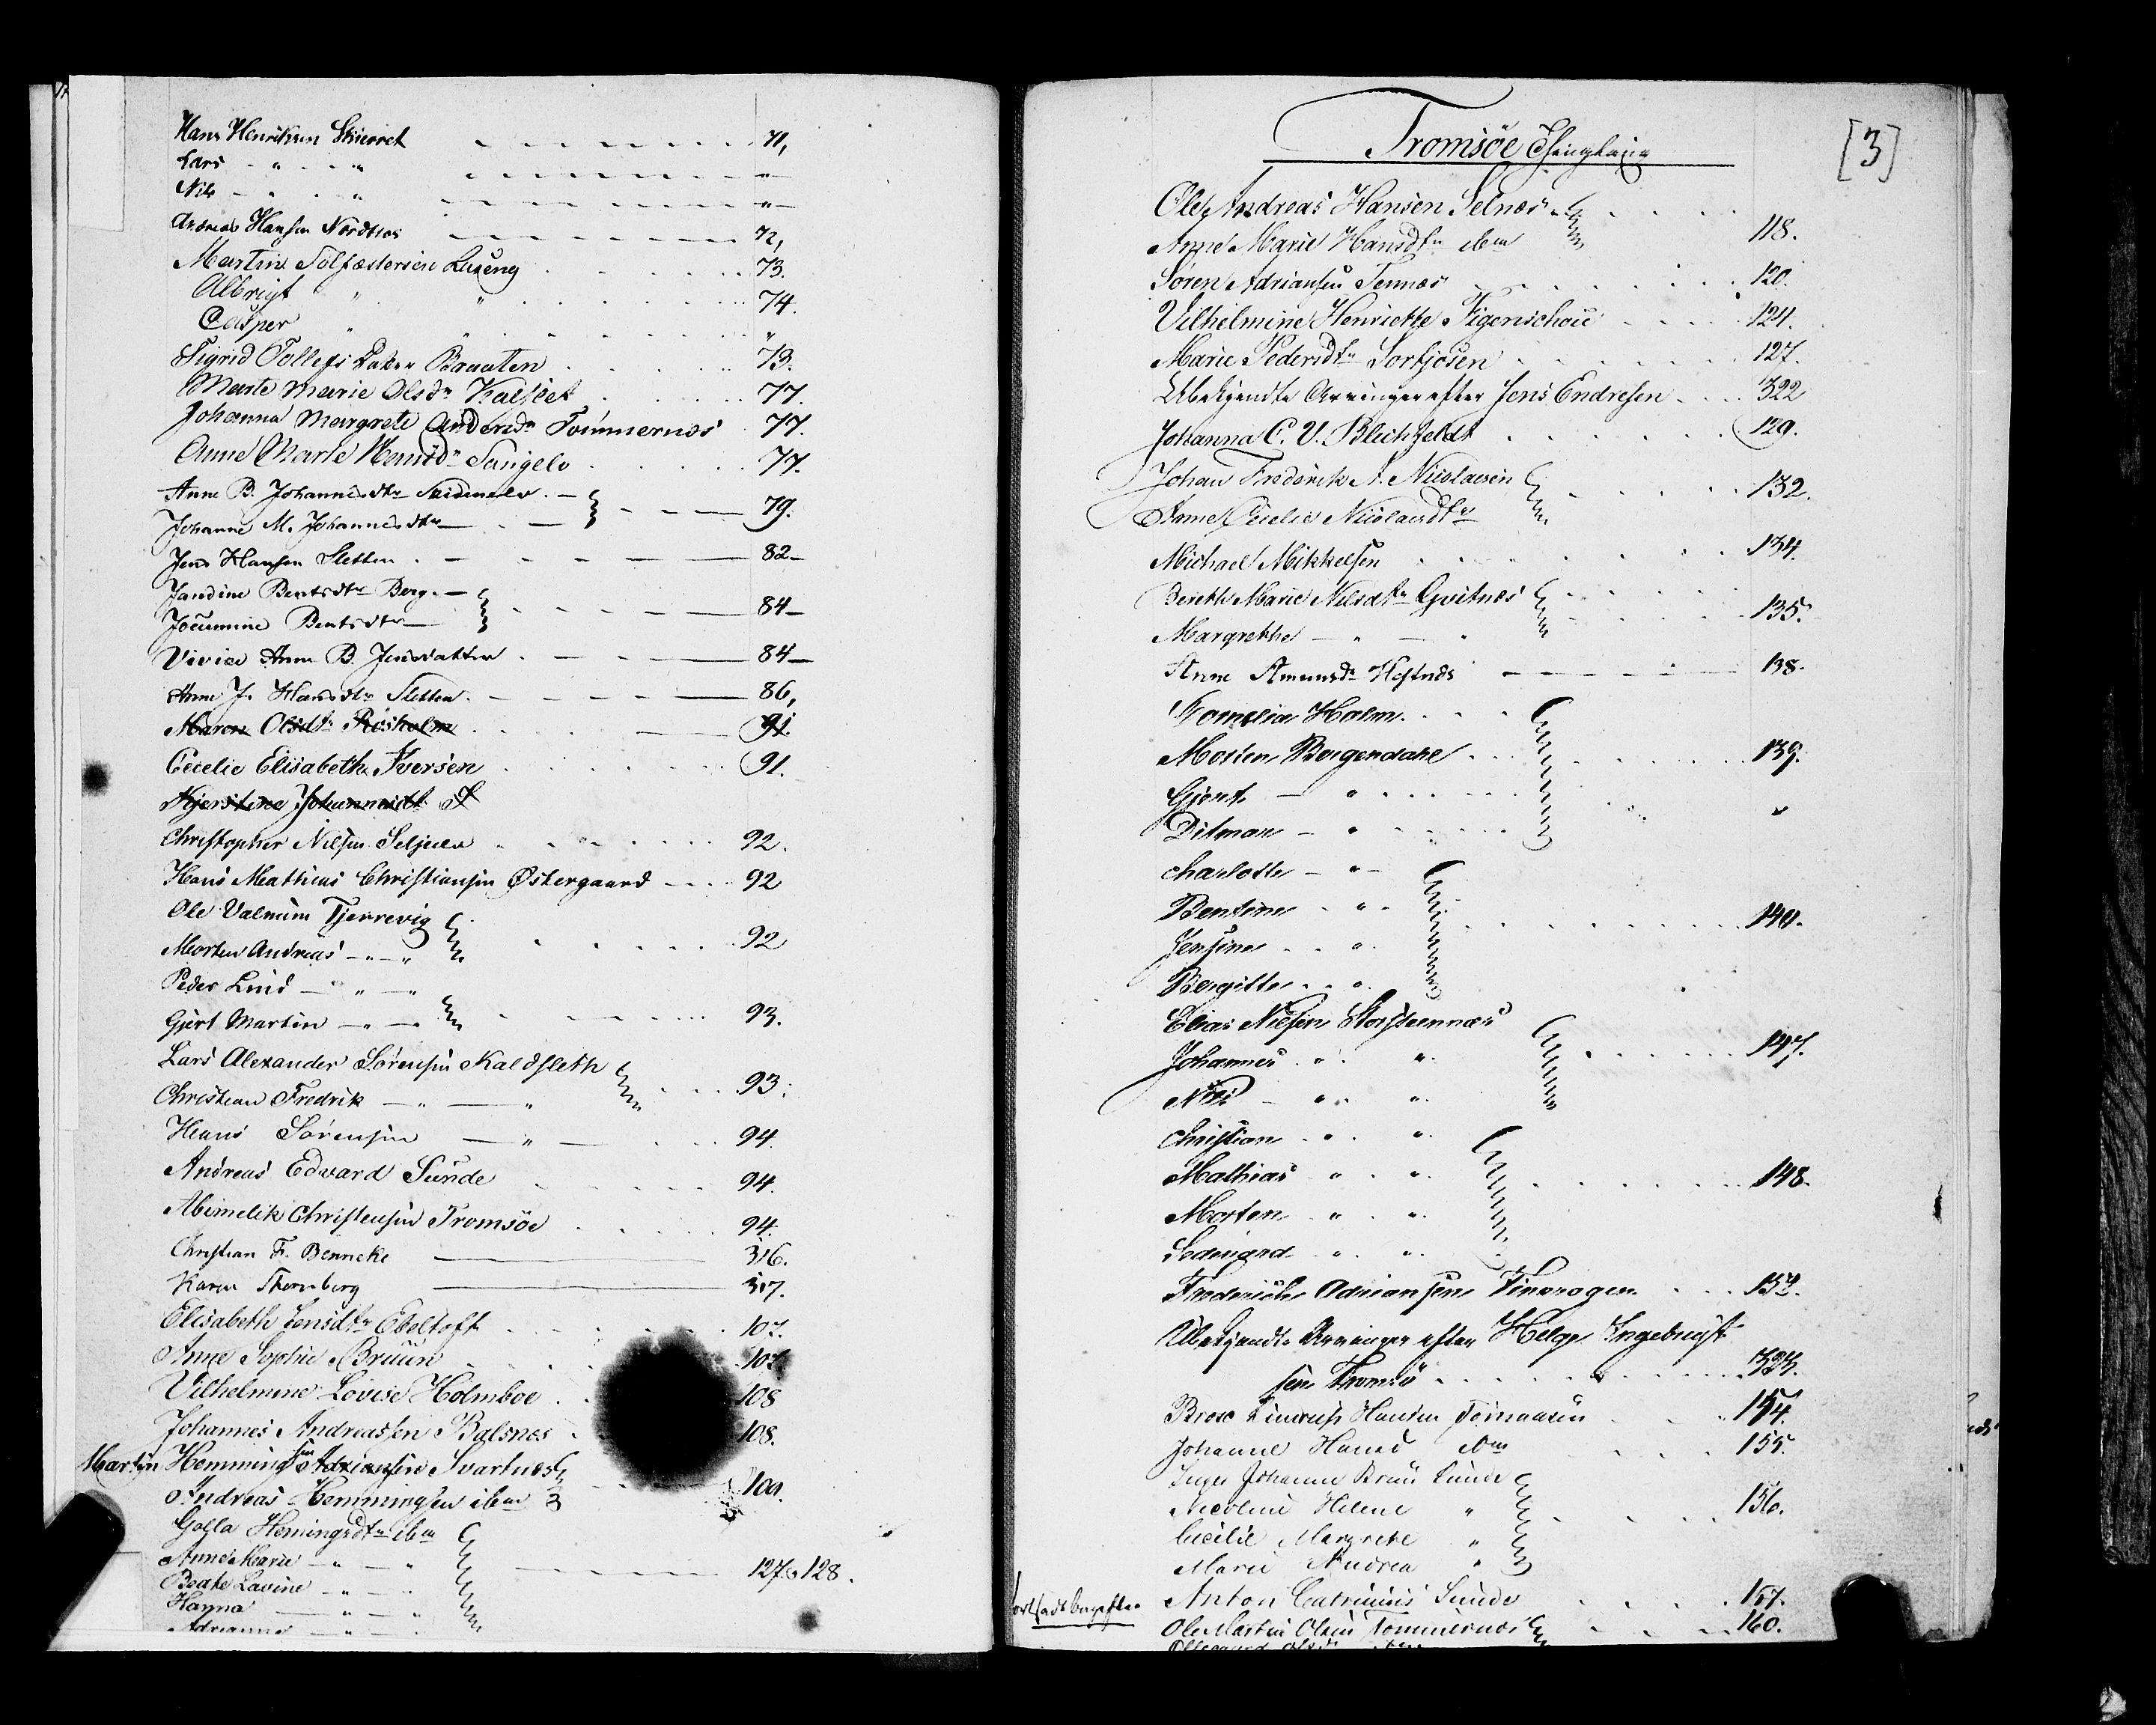 Hans Henriksen Skierret 71,
Lars " " "
Nils " " "
Andreas Hansen Nordbos 72,
Martin Solfæstersen Luxeng 73.
Albrigt " " 74.
Casper " " "
Sigrid Tollefs Datter Braaten 73.
Marte Marie Olsdr Kalslet 77.
Johanna Margrete Andersdr Tømmernæs 77.
Anne Marte Hemisdr Sangelv 77.
Anne B. Johannesdtr
Johanne M. Johannesdtr 79.
Jens Hansen Sletten 82
Jandine Bentsdtr Berg
Jocumine Bentsdtr 84
Vivica Anne B. Jensdatter 84
Anne J. Hansdtr Sletten 86,
Maren Olsdtr Risholm 91.
Cecelie Elisabeth Iversen 91.
Kjerstine Johannesdt
Christopher Nilsen Seljeelv 92.
Hans Mathias Christiansen Østergaard 92
Ole Valnum Tjerrevig
Morten Andreas " " 92
Peder Lind " "
Gjert Martin " 93.
Lars Alexander Sørensen Kaldsleth
Christian Fredrik " " 93.
Hans Sørensen " 94.
Andreas Edvard Sunde 94.
Abimelik Christensen Tromsøe 94.
Christian F. Bennecke 316.
Karen Thornberg 317.
Elisabeth Jensdtr Ebeltoft 107.
Anne Sophie Bruun 107.
Vilhelmine Lovise Holmboe 108
Johannes Andreassen Balsnes 108.
Martin Hemmingsen Adriansen Svartnes
Andreas Hemmingsen ibm 109.
Golla Hemingsdtr ibm
Anne Marie " "
Beate Lavine " " 127 & 128.
Hanna " "
Adrianna "
Tromsøe Thinglaug
[3]
Ole Andreas Hansen Selnæs
Anne Marie Hansdtr ibm 118.
Søren Adriansen Tennæs 120.
Vilhelmine Henriette Figenschou 124.
Marie Pedersdtr Sortjosen 127.
Ubekjendte Arvinger efter Jens Endresen 322
Johanna C. V. Blichfeldt 129.
Johan Frederik A. Nicolaisen 132.
Anne Cecelie Nicolaisdtr
Michael Mikkelsen 134.
Bereth Marie Nilsdtr Gvitnæs 135.
Margrethe " "
Anne Amunsdr 138.
Cornelia Holm
Morten Bergendahl 139.
Gjert "
Ditman "
Charlotte "
Bentine " 140.
Jensine "
Bergitte "
Elias Nielsen Storsteennæs
Johannes " " 147.
Nils " "
Christian " "
Mathias " " 148.
Morten " "
Sedvigard " "
Frederich Adriansen Finkrogen 152.
Ubekjendte Arvinger efter Helge Ingebrigt
sen Tromsø 323.
Hansen 154.
Johanne Hansd ibm 155.
Inger Johanne Bruu Sunde
Nicoline Helene " 156.
Cecilie Margrete "
Marie Andrea "
Anton Sunde 157.
Ole Martin Olsen Tommernæs 160.